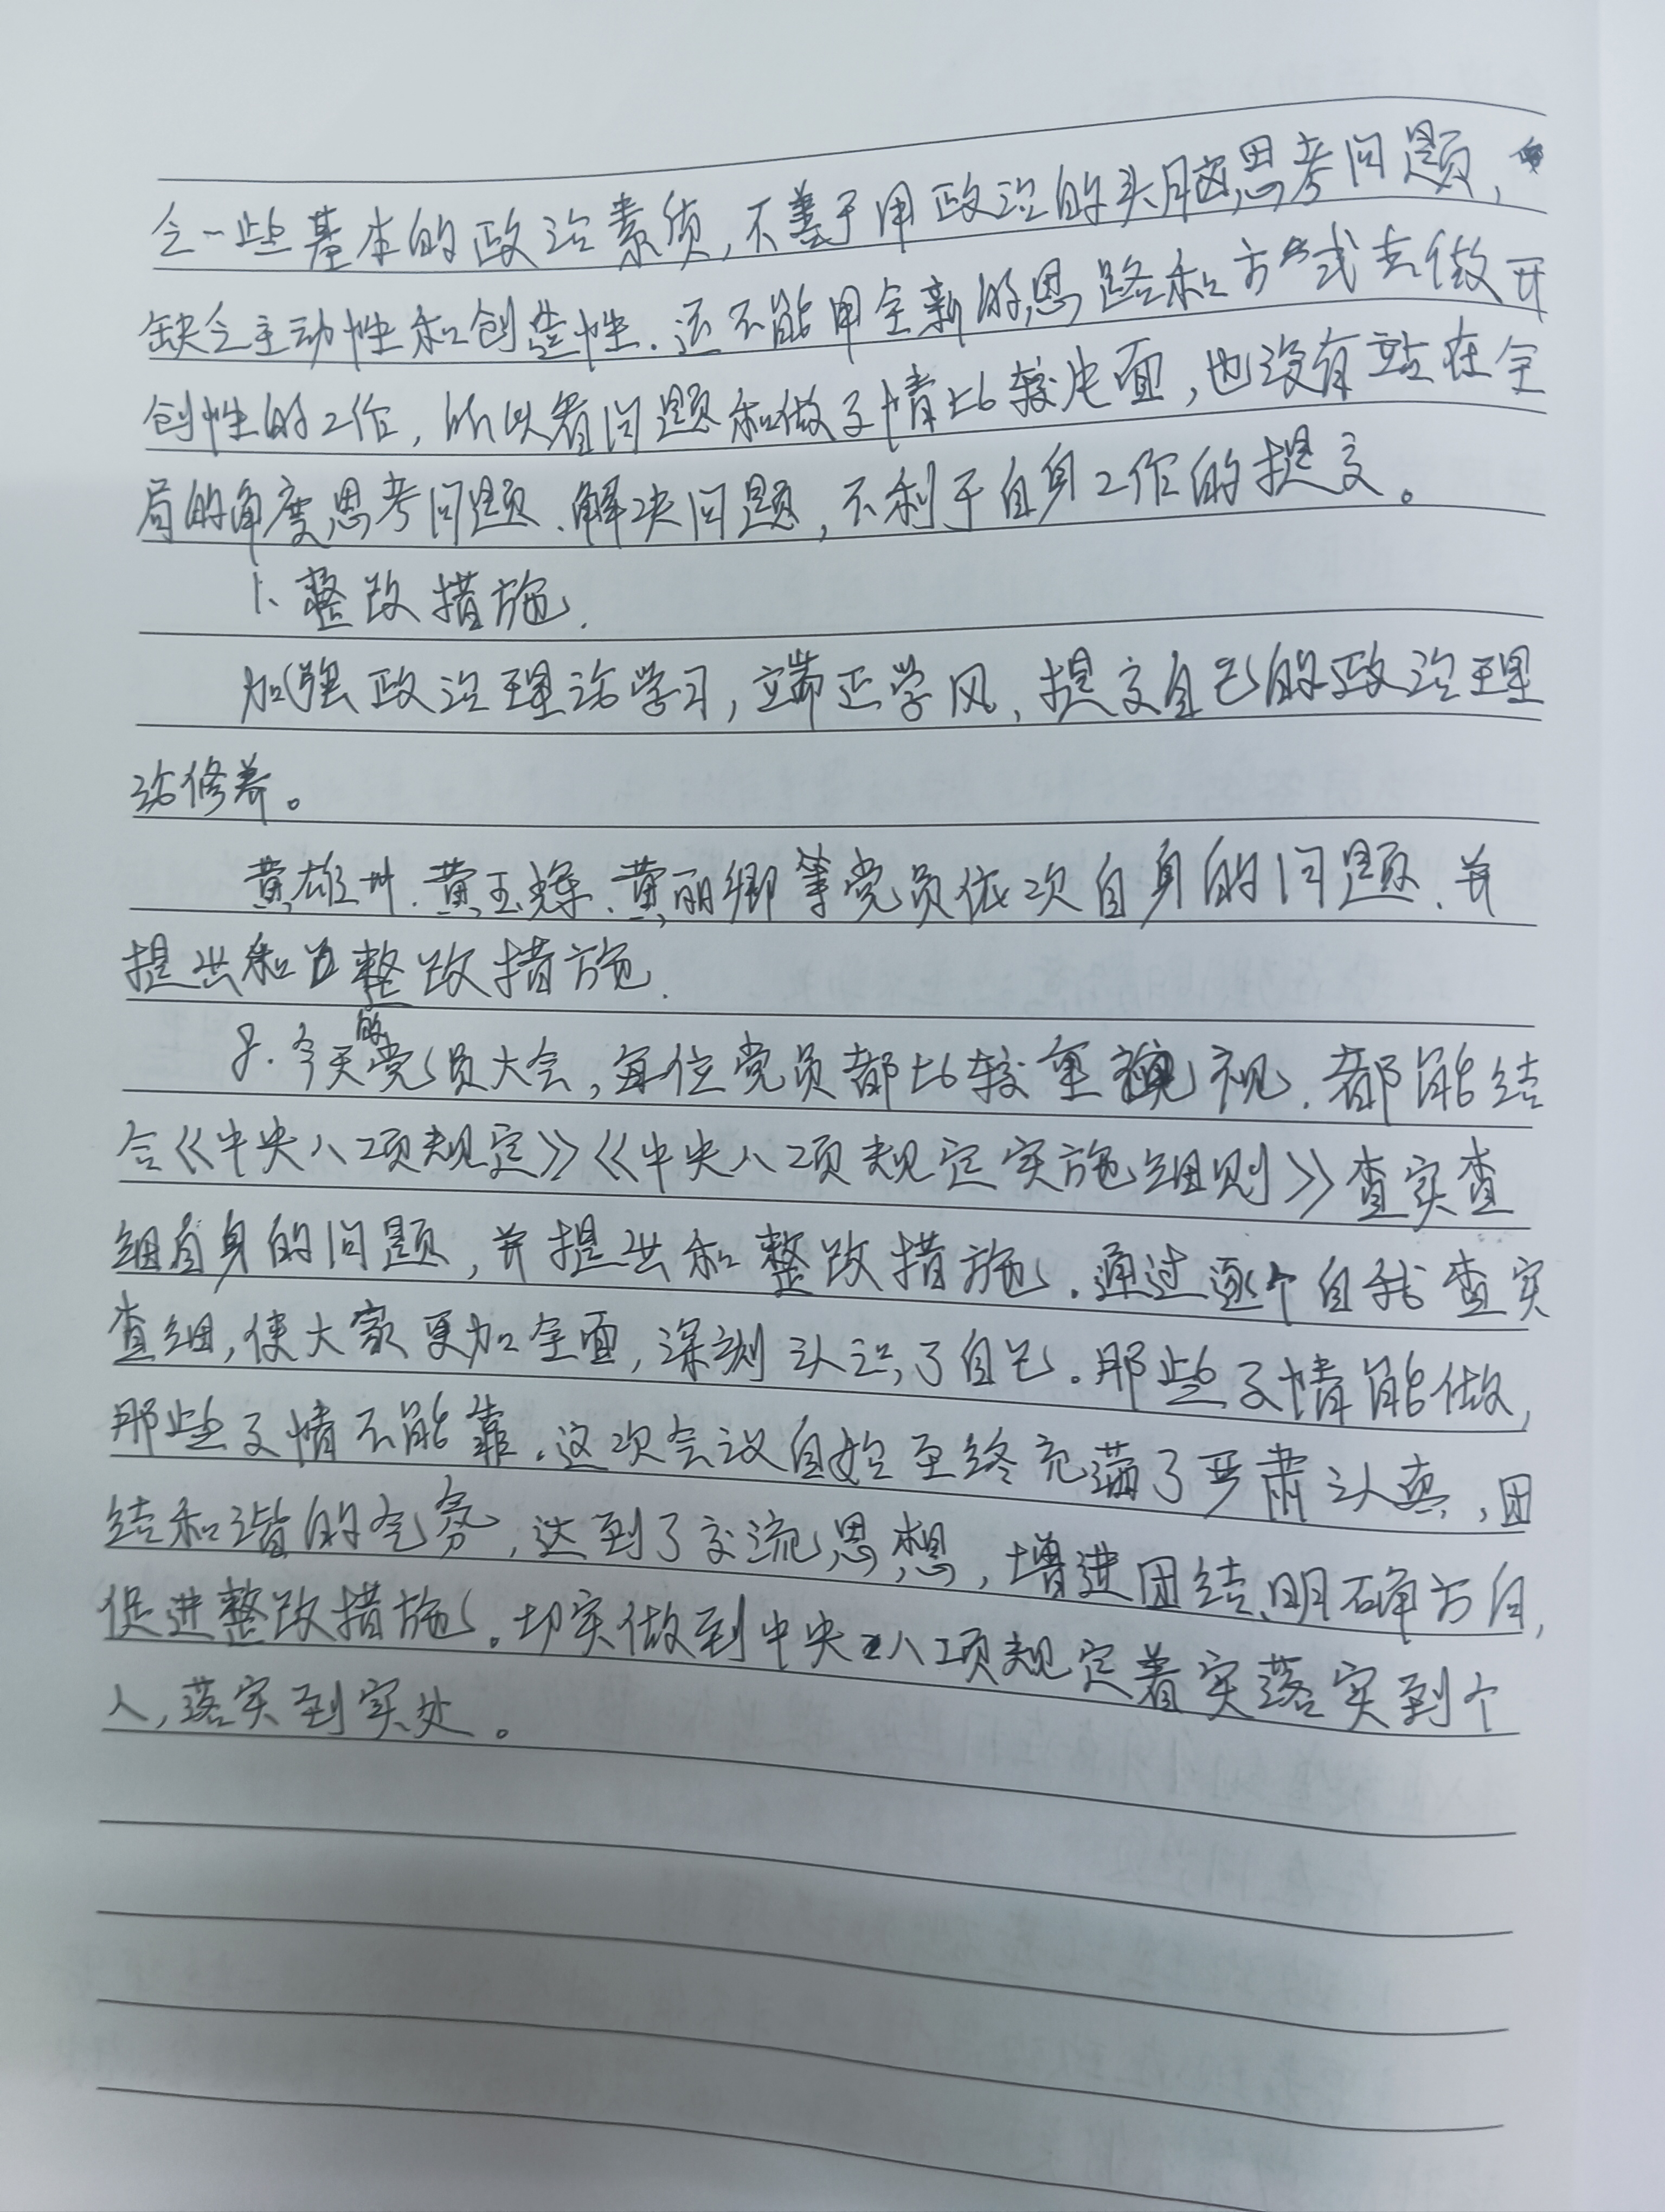 乏一些基本的政治素质,不善于用政治的头脑思考问题,
缺乏主动性和创造性.还不能用全新的思路和方式去做开
创性的工作,所以看问题和做事情比较片面,也没有站在全
局的角度思考问题.解决问题,不利于自身工作的提高。
1、整改措施.
加强政治理论学习,端正学风,提高自己的政治理
论修养。
黄雄州.黄玉蝶.黄丽卿等党员依次自身的问题.并
提出和整改措施.
8.今天的党员大会,每位党员都比较重视.都能结
合《中央八项规定》《中央八项规定实施细则》查实查
细自身的问题,并提出和整改措施.通过逐个自我查实
查细,使大家更加全面,深刻认识了自己.那些事情能做,
那些事情不能靠.这次会议自始至终充满了严肃认真,团
结和谐的气氛,达到了交流思想,增进团结,明确方向,
促进整改措施。切实做到中央八项规定着实落实到个
人,落实到实处。